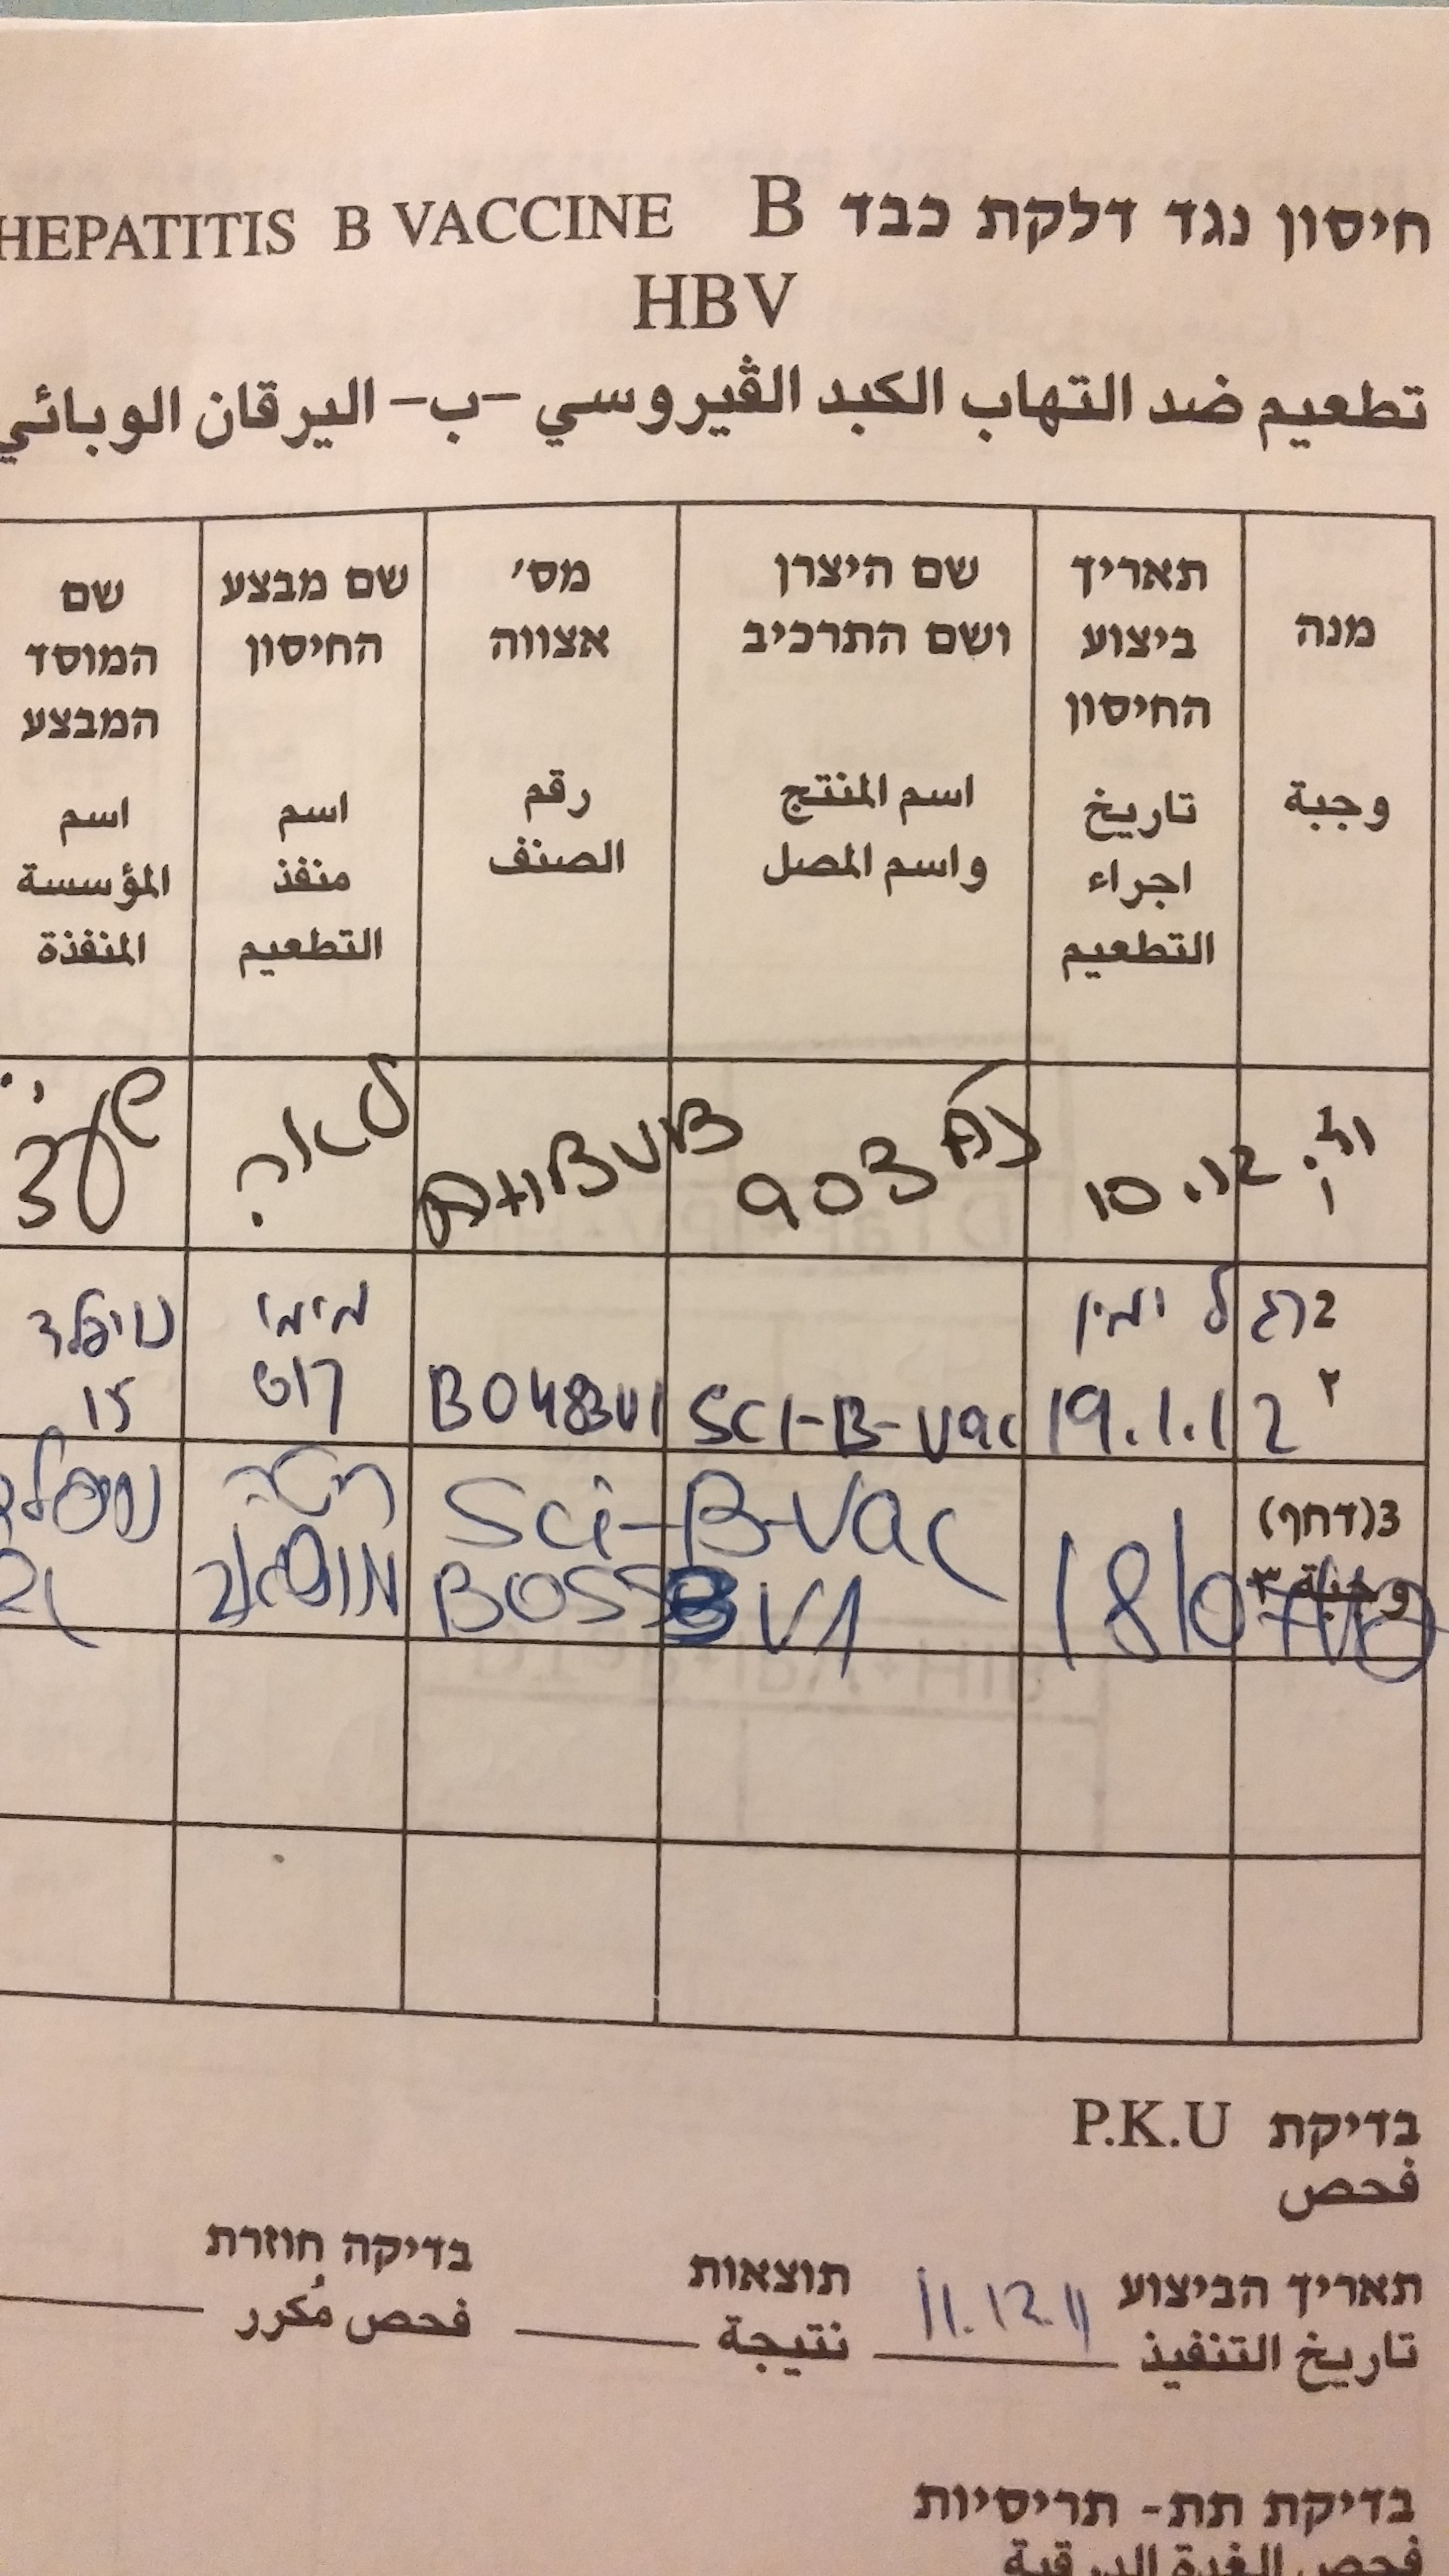 חיסון נגד דלקת כבד B HEPATITIS B VACCINE
HBV
تطعيم ضد التهاب الكبد الڤيروسي -ب- اليرقان الوبائي
מנה
وجبة
תאריך
ביצוע
החיסון
تاريخ
اجراء
التطعيم
שם היצרן
ושם התרכיב
اسم المنتج
واسم المصل
מס׳
אצווה
رقم
الصنف
שם מבצע
החיסון
اسم
منفذ
التطعيم
שם
המוסד
המבצע
اسم
المؤسسة
المنفذة
10.12
903
2 רגל ימין
٢
19.1.12
SCI-B-Vac
B048BV1
מימי
15
3(דחף)
وجبة ٣
18/07/12
Sci-B-Vac
BOSSBV1
בדיקת P.K.U
فحص
תאריך הביצוע 11.12.11 תוצאות בדיקה חוזרת
تاريخ التنفيذ نتيجة فحص مكرر
בדיקת תת- תריסיות
فحص الغدة الدرقية